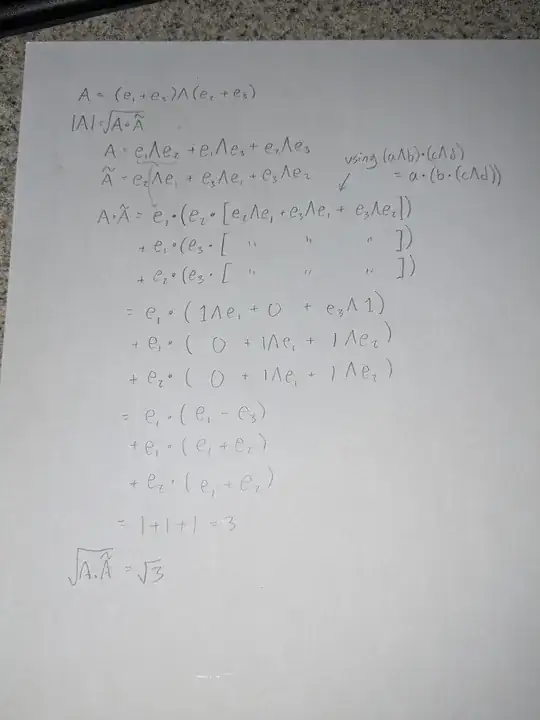 A = (e₁+e₃)∧(e₂+e₃)
|A| = √A·Ã
A = e₁∧e₂ + e₁∧e₃ + e₂∧e₃
Ã = e₂∧e₁ + e₃∧e₁ + e₃∧e₂
using (a∧b)·(c∧d)
= a·(b·(c∧d))
A·Ã = e₁·(e₂·[e₂∧e₁+e₃∧e₁+ e₃∧e₂])
+ e₁·(e₃·[ " " " ])
+ e₂·(e₃·[ " " " ])
= e₁·(1∧e₁ + 0 + e₃∧1)
+ e₁·( 0 + 1∧e₁ + 1∧e₂)
+ e₂·( 0 + 1∧e₁ + 1∧e₂)
= e₁·(e₁ - e₃)
+ e₁·(e₁ + e₂)
+ e₂·(e₁ + e₂)
= 1+1+1 = 3
√A·Ã = √3